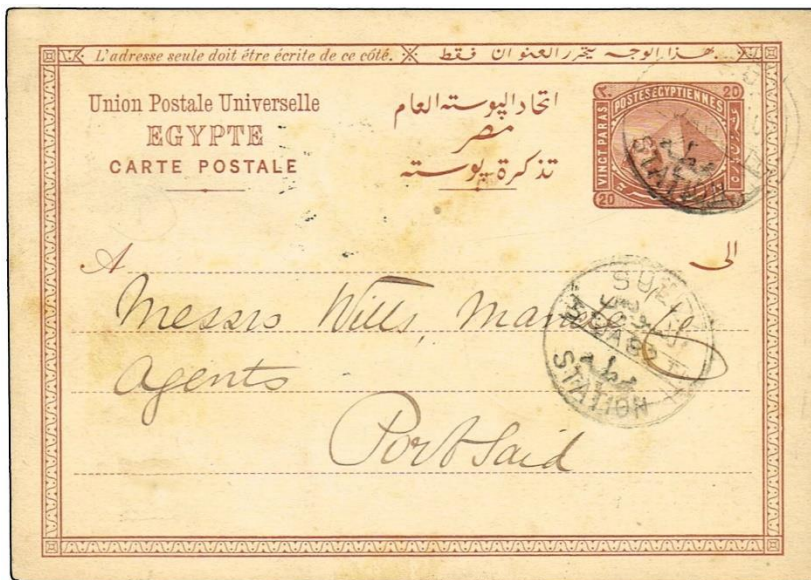 L'adresse seule doit être écrite de ce côté.
هذا الوجه يتحرر العنوان فقط
Union Postale Universelle
EGYPTE
CARTE POSTALE
اتحاد البوسته العام
مصر
تذكرة بوسته
٢٠ 20
POSTES EGYPTIENNES
VINGT PARAS
20
A
الى
Messrs Wills,
Agents
Port Said
STATION
محطة
STATION